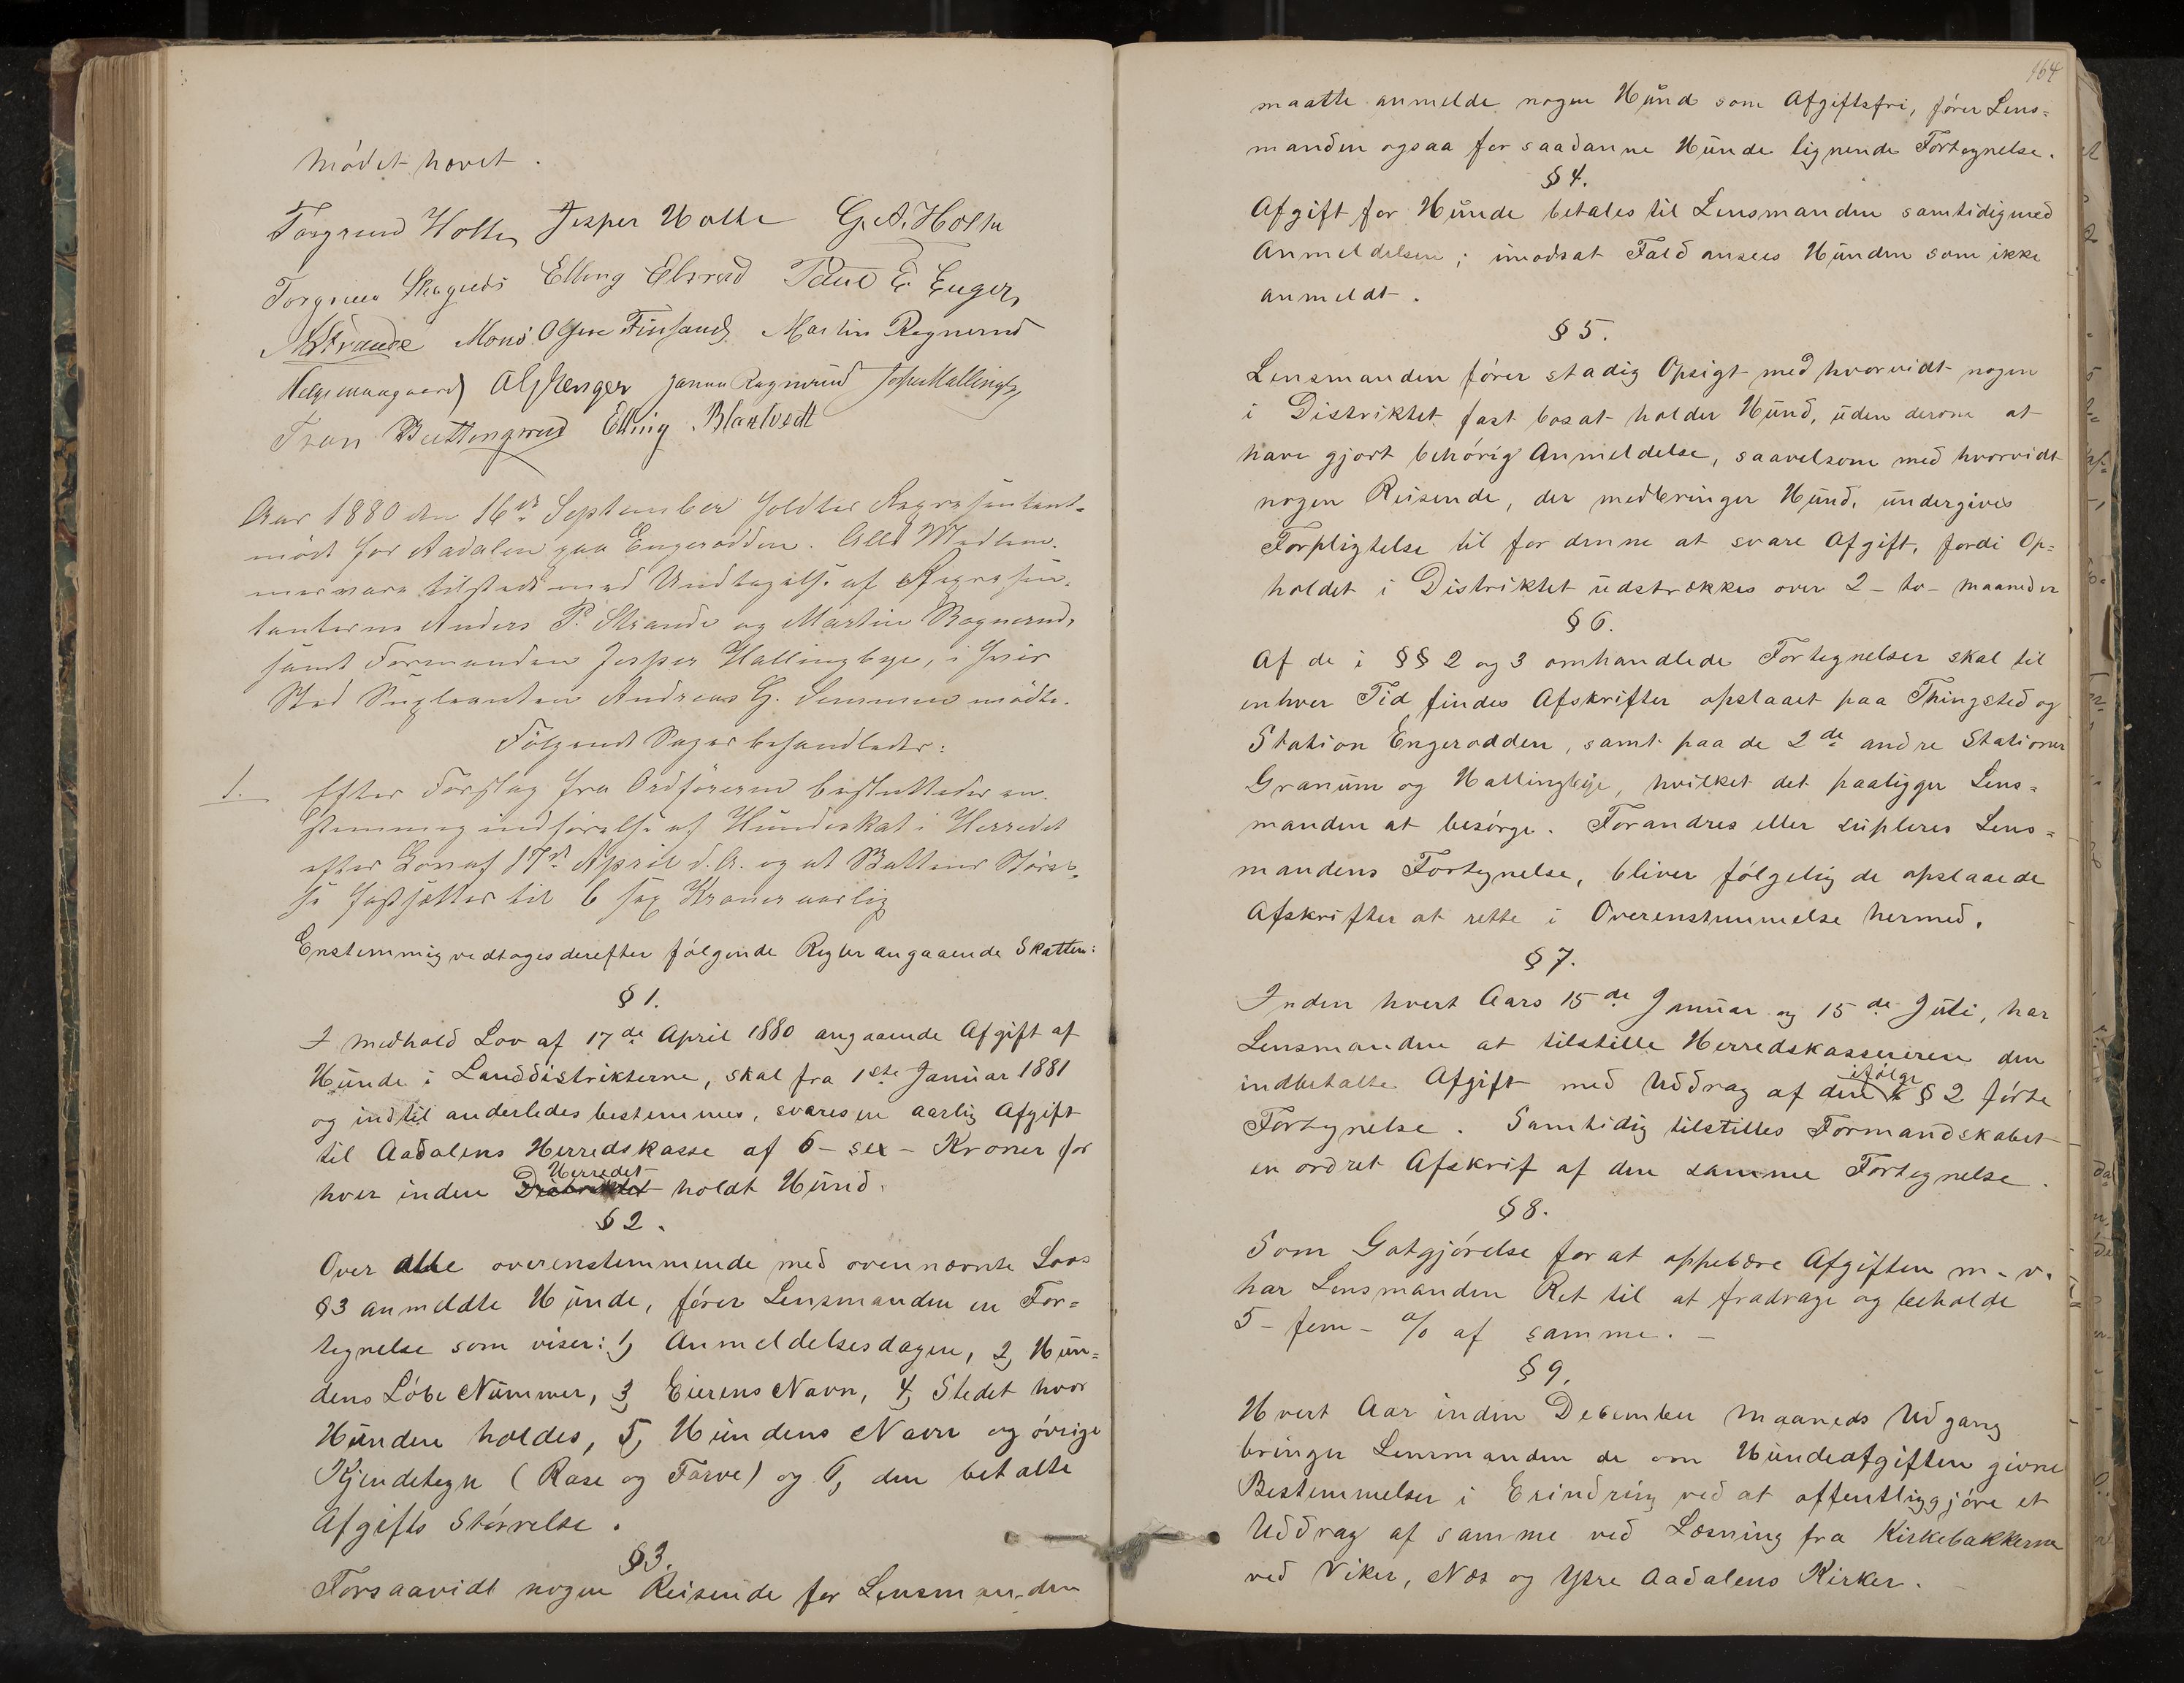 Mødet hævet.
Torgrim Holte Jesper Holte G. A. Holte
Elling Elsrud Paul E. Enger,
AStrande Mons Olsen Finsand Martin Rognerud
Elling Blakstvedt
Aar 1880 den 16de September holdtes Repræsentant-
møde for Aadalen paa Engerodden. Alle Medlem-
mer vare tilstede med Undtagelse af Repræsen-
tanterne Anders P. Strande og Martin Rognerud,
samt Formanden Jesper Hallingbye, i hvis
Sted Supleanten Andreas G. mødte.
Følgende Sager behandledes:
1. Efter Forslag fra Ordføreren besluttedes en-
stemmig indførelse af Hundeskat i Herredet
efter Lov af 17de April d. A. og at Skattens Størrel-
se fastsættes til 6 sex Kroner aarlig
Enstemmig vedtoges derefter følgende Regler angaaende Skatten:
§ 1.
I medhold Lov af 17de April 1880 angaaende Afgift af
Hunde i Landdistrikterne, skal fra 1ste Januar 1881
og indtil anderledes bestemmes, svares en aarlig Afgift
til Aadalens Herredskasse af 6 - sex - Kroner for
hver inden Distriktet Herredet holdt Hund.
§ 2.
Over alle overenstemmende med ovennævnte Lovs
§3 anmeldte Hunde, fører Lensmanden en For=
tegnelse som viser: 1, Anmeldelsesdagen, 2, Hun=
dens Løbe Nummer, 3, Eierens Navn, 4, Stedet hvor
Hunden holdes, 5, Hundens Navn og øvrige
Kjendetegn (Rase og Farve) og 6, den betalte
Afgifts Størrelse.
§3.
Forsaavidt nogen Reisende for Lensmanden
164
maatte anmelde nogen Hund som Afgiftsfri, fører Lens=
manden ogsaa for saadanne Hunde lignende Fortegnelse.
§ 4.
Afgift for Hunde betales til Lensmanden samtidig med
Anmeldelsen; imodsat Fald ansees Hunden som ikke
anmeldt.
§ 5.
Lensmanden fører stadig Opsigt med hvorvidt nogen
i Distriktet fast bosat holder Hund, uden derom at
have gjort behørig Anmeldelse, saavelsom med hvorvidt
nogen Reisende, der medbringer Hund, undergives
Forpligtelse til for denne at svare Afgift, fordi Op=
holdet i Distriktet udstrækkes over 2 - to - maaneder
§ 6.
Af de i §§ 2 og 3 omhandlede Fortegnelser skal til
enhver Tid findes Afskrifter opslaaet paa Thingsted og
Station Engerodden, samt paa de 2de andre Stationer
Granum og Hallingbye, hvilket det paaligger Lens=
manden at besørge. Forandres eller supleres Lens=
mandens Fortegnelse, bliver følgelig de opslaaede
Afskrifter at rette i Overenstemmelse hermed.
§ 7.
Inden hvert Aars 15de Januar og 15de Juli, har
Lensmanden at tilstille Herredskassereren den
indbetalte Afgift med Uddrag af den ifølge § 2 førte
Fortegnelse. Samtidig tilstilles Formandskabet
en ordret Afskrif af den samme Fortegnelse.
§ 8.
Som Gotgjørelse for at oppebære Afgiften m. v.
har Lensmanden Ret til at fradrage og beholde
5 - fem - % af samme. -
§ 9.
Hvert Aar inden December Maaneds Udgang
bringer Lensmanden de om Hundeafgiften givne
Bestemmelser i Erindring ved at offentliggjøre et
Uddrag af samme ved Læsning fra Kirkebakkerne
ved Viker, Næs og Ytre Aadalens Kirker.